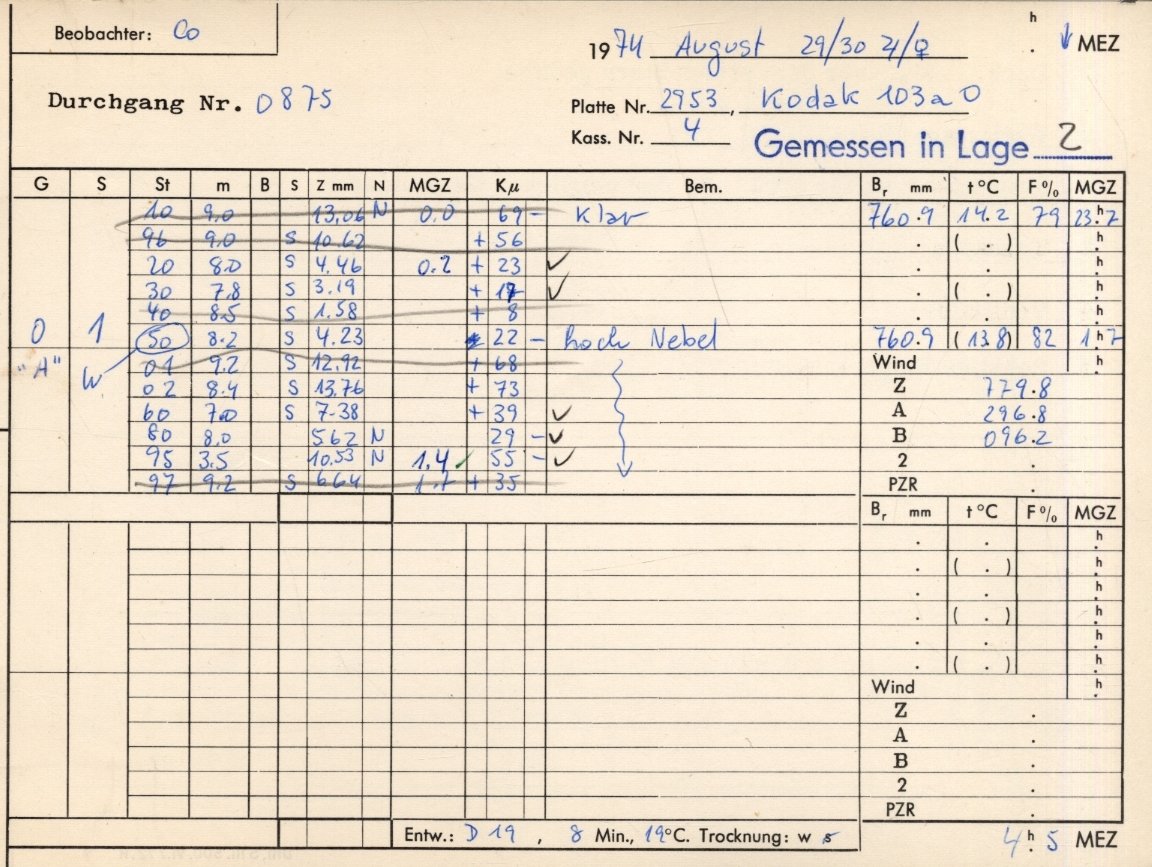 Beobachter: Co
1974 August 29/30 ♃/♀ h . ↓ MEZ
Durchgang Nr. 0875
Platte Nr. 2953, Kodak 103a0
Kass. Nr. 4
Gemessen in Lage 2
G S St m B S Z mm N MGZ Kμ Bem. Br mm t°C F% MGZ
10 9.0 13.06 N 0.0 69 - Klar 760.9 14.2 79 23.h7
96 9.0 S 10.62 + 56 . ( . ) h
20 8.0 S 4.46 0.2 + 23 ✓ . . h
30 7.8 S 3.19 + 17 ✓ . ( . ) h
40 8.5 S 1.58 + 8 . . h
0 1 50 8.2 S 4.23 22 - hoch Nebel 760.9 (13.8) 82 1.h7
"A" W 01 9.2 S 12.92 + 68 Wind h
02 8.4 S 13.76 + 73 Z 779.8
60 7.0 S 7.38 + 39 ✓ A 296.8
80 8.0 5.62 N 29 - ✓ B 096.2
95 3.5 10.53 N 1.4 ✓ 55 - ✓ 2 .
97 9.2 S 6.64 1.7 + 35 PZR .
Br mm t°C F% MGZ
. . h
. ( . ) h
. . h
. ( . ) h
. . h
. ( . ) h
Wind h
Z .
A .
B .
2 .
PZR .
Entw.: D 19, 8 Min., 19°C. Trocknung: w s 4.h5 MEZ